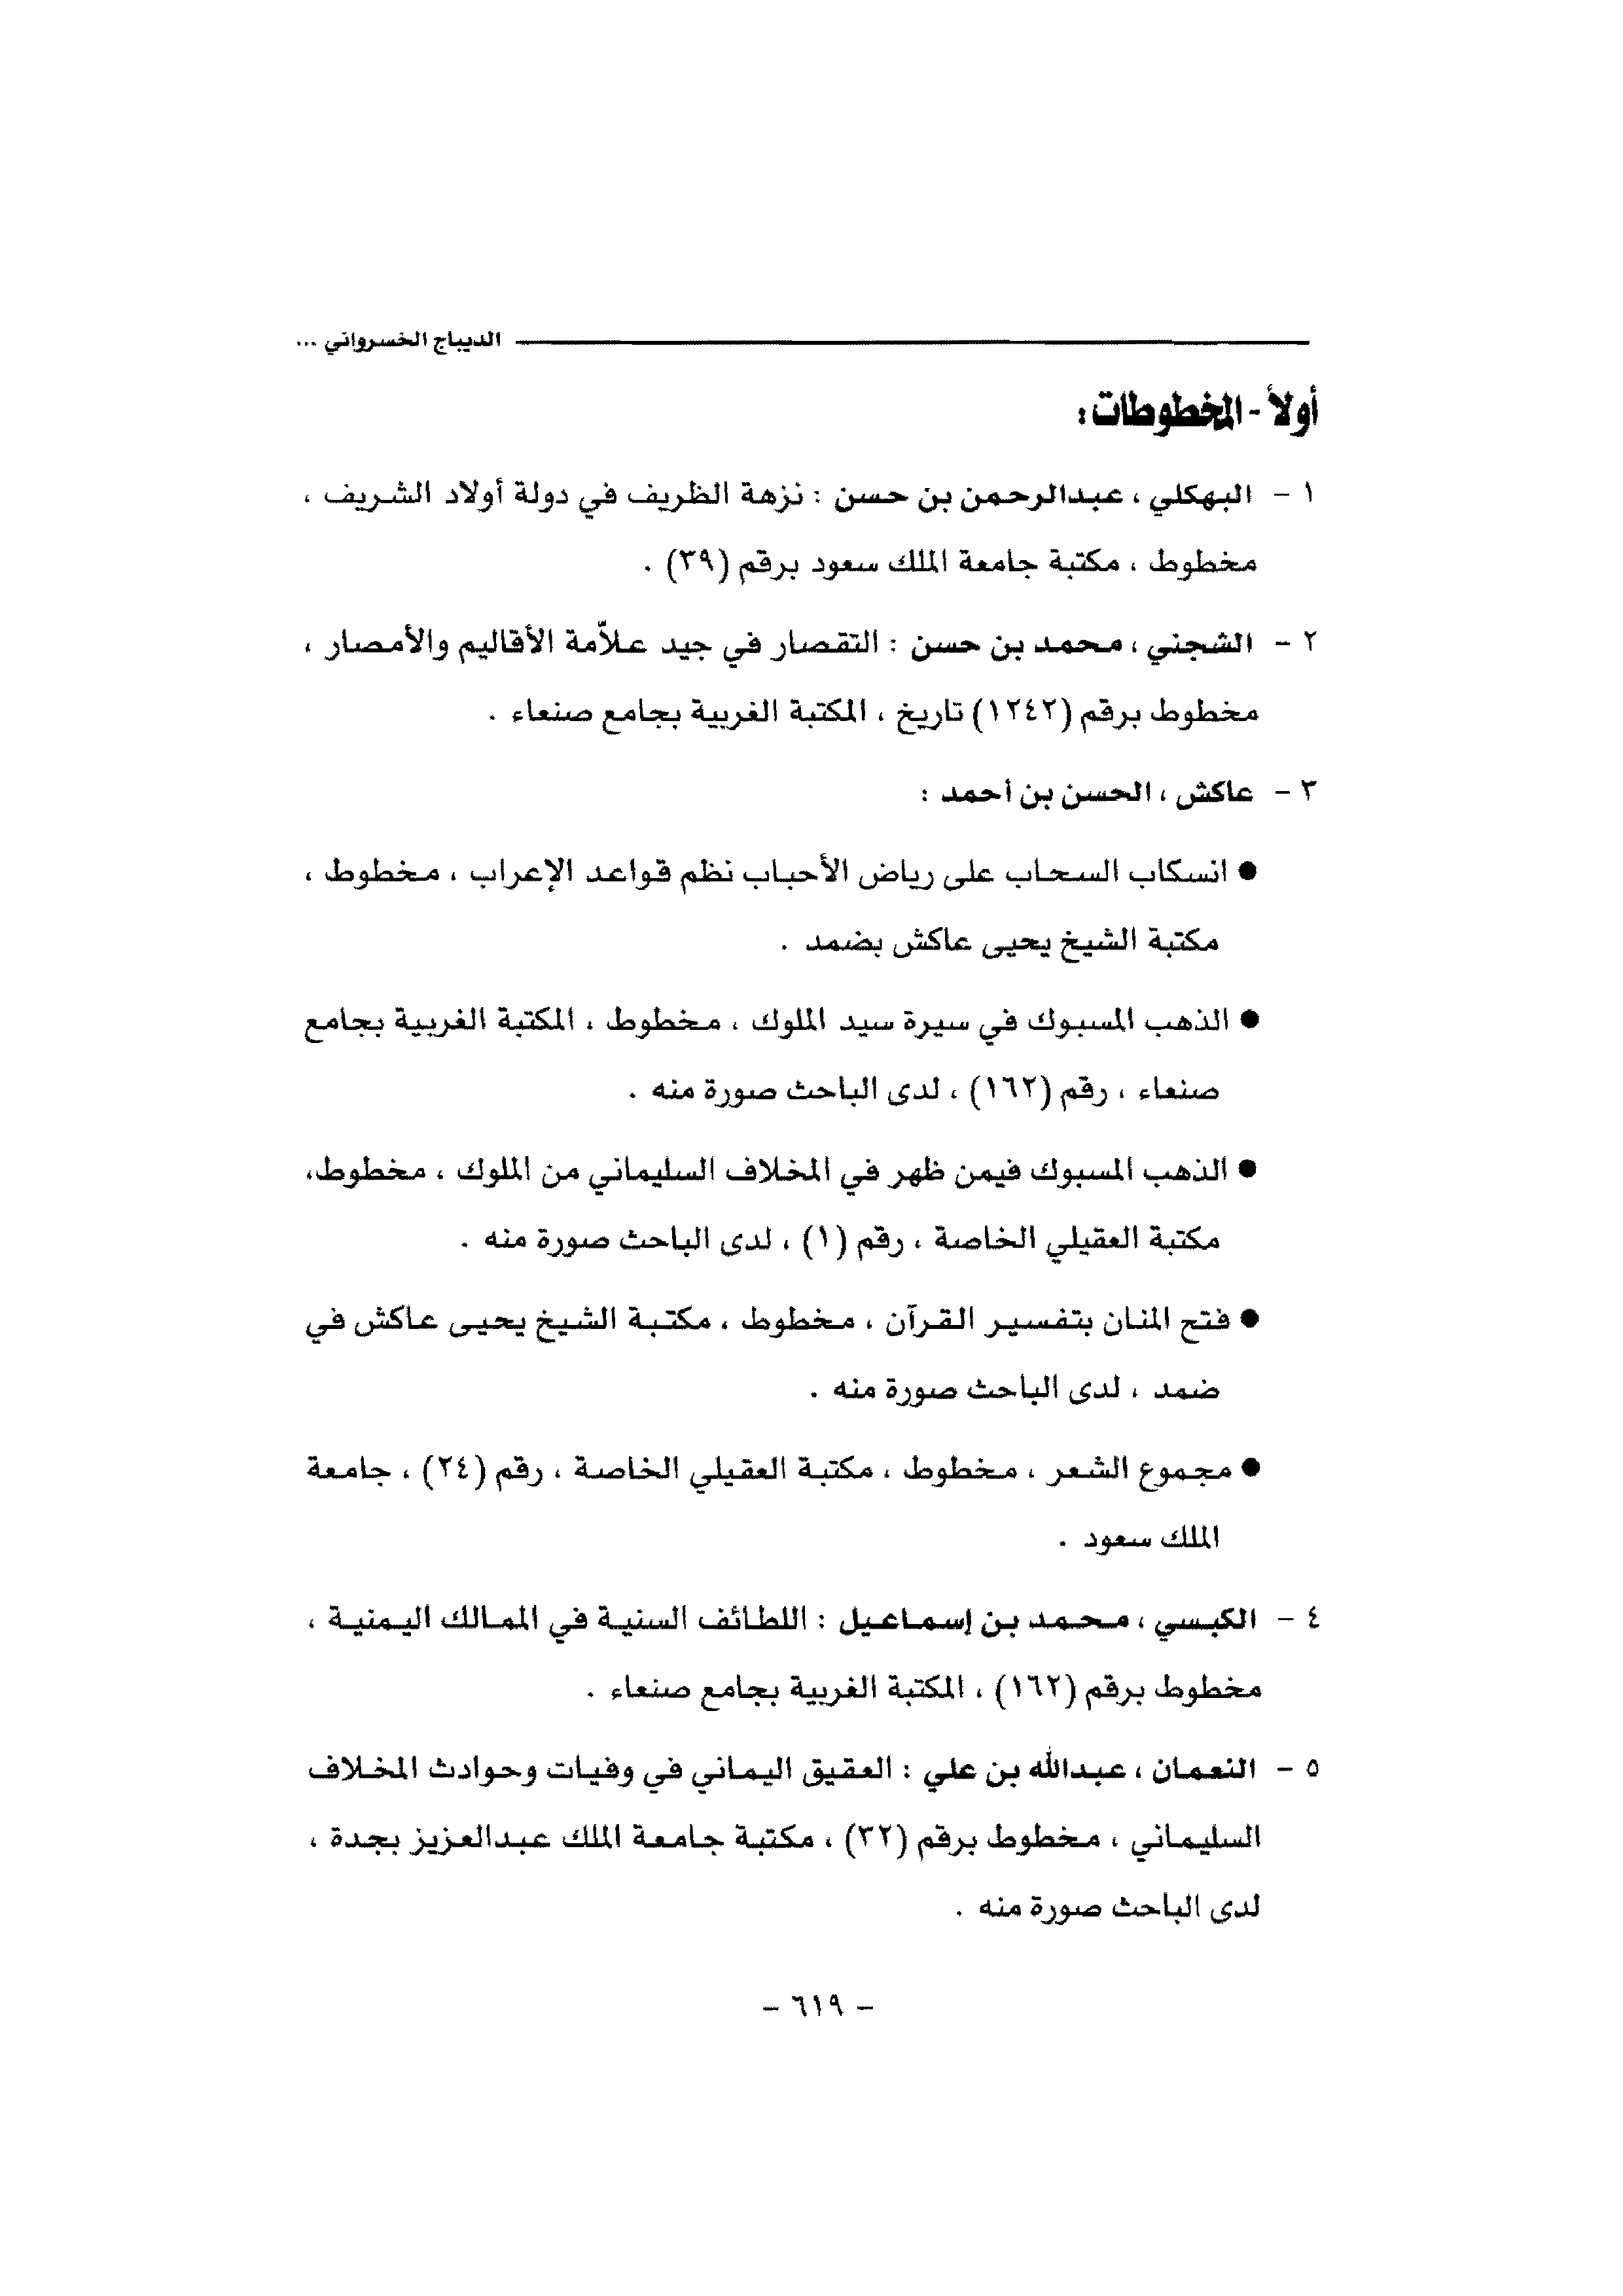 الديباج الخسرواني ...
أولاً - المخطوطات :
١ - البهكلي ، عبدالرحمن بن حسن : نزهة الظريف في دولة أولاد الشريف ،
مخطوط ، مكتبة جامعة الملك سعود برقم (٣٩) .
٢ - الشجني ، محمد بن حسن : التقصار في جيد علاّمة الأقاليم والأمصار ،
مخطوط برقم (١٢٤٢) تاريخ ، المكتبة الغربية بجامع صنعاء .
٣ - عاكش ، الحسن بن أحمد :
● انسكاب السحاب على رياض الأحباب نظم قواعد الإعراب ، مخطوط ،
مكتبة الشيخ يحيى عاكش بضمد .
● الذهب المسبوك في سيرة سيد الملوك ، مخطوط ، المكتبة الغربية بجامع
صنعاء ، رقم (١٦٢) ، لدى الباحث صورة منه .
● الذهب المسبوك فيمن ظهر في المخلاف السليماني من الملوك ، مخطوط،
مكتبة العقيلي الخاصة ، رقم (١) ، لدى الباحث صورة منه .
● فتح المنان بتفسير القرآن ، مخطوط ، مكتبة الشيخ يحيى عاكش في
ضمد ، لدى الباحث صورة منه .
● مجموع الشعر ، مخطوط ، مكتبة العقيلي الخاصة ، رقم (٢٤) ، جامعة
الملك سعود .
٤ - الكبسي ، محمد بن إسماعيل : اللطائف السنية في الممالك اليمنية ،
مخطوط برقم (١٦٢) ، المكتبة الغربية بجامع صنعاء .
٥ - النعمان ، عبدالله بن علي : العقيق اليماني في وفيات وحوادث المخلاف
السليماني ، مخطوط برقم (٣٢) ، مكتبة جامعة الملك عبدالعزيز بجدة ،
لدى الباحث صورة منه .
- ٦١٩ -